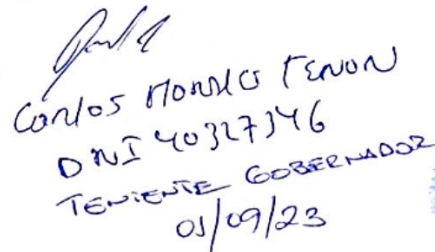 Carlos Tenon
DNI 40327346
TENIENTE GOBERNADOR
01/09/23